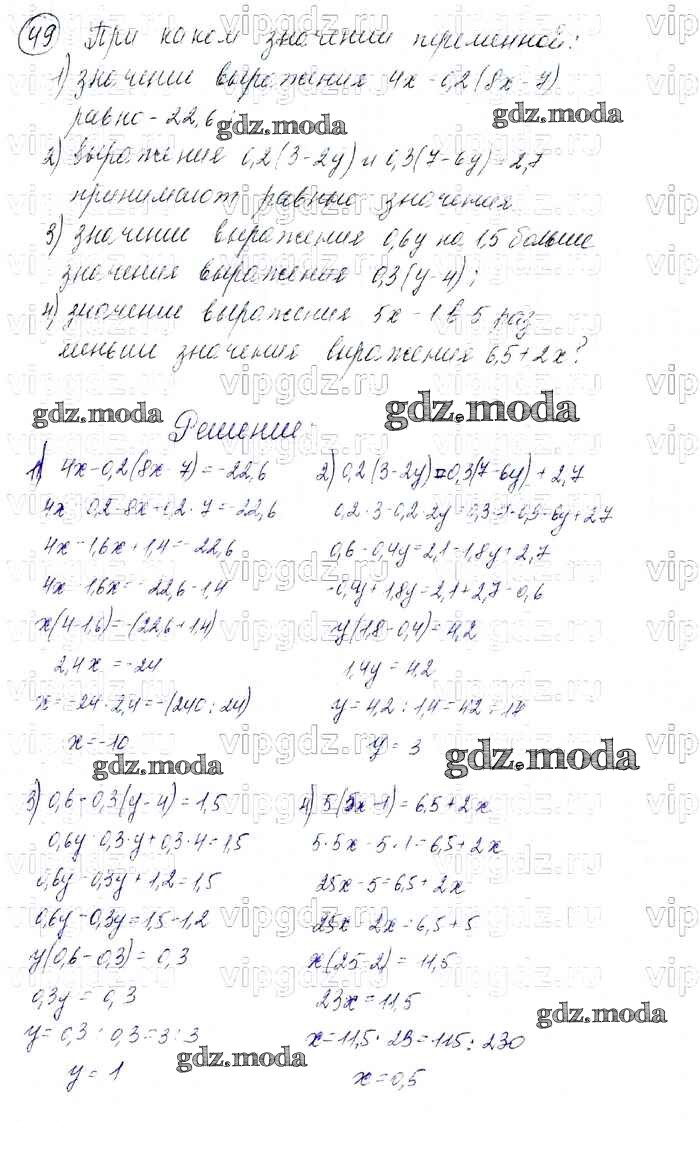 49 При каком значении переменной:
1) значение выражения 4x - 0,2(8x - 7)
равно - 22,6;
2) выражения 0,2(3-2y) и 0,3(7-6y)+2,7
принимают равные значения
3) значение выражения 0,6y на 1,5 больше
значения выражения 0,3(y-4);
4) значение выражения 5x - 1 в 5 раз
меньше значения выражения 6,5+2x?
Решение:
1) 4x-0,2(8x-7)=-22,6
4x-0,2·8x+0,2·7=-22,6
4x-1,6x+1,4=-22,6
4x-1,6x=-22,6-1,4
x(4-1,6)=-(22,6+1,4)
2,4x=-24
x=-24:2,4=-(240:24)
x=-10
2) 0,2(3-2y)=0,3(7-6y)+2,7
0,2·3-0,2·2y=0,3·7-0,3·6y+2,7
0,6-0,4y=2,1-1,8y+2,7
-0,4y+1,8y=2,1+2,7-0,6
y(1,8-0,4)=4,2
1,4y=4,2
y=4,2:1,4=42:14
y=3
3) 0,6-0,3(y-4)=1,5
0,6y-0,3·y+0,3·4=1,5
0,6y-0,3y+1,2=1,5
0,6y-0,3y=1,5-1,2
y(0,6-0,3)=0,3
0,3y=0,3
y=0,3:0,3=3:3
y=1
4) 5(5x-1)=6,5+2x
5·5x-5·1=6,5+2x
25x-5=6,5+2x
25x-2x=6,5+5
x(25-2)=11,5
23x=11,5
x=11,5:23=115:230
x=0,5
gdz.moda
gdz.moda
gdz.moda
gdz.moda
gdz.moda
gdz.moda
gdz.moda
gdz.moda
vipgdz.ru